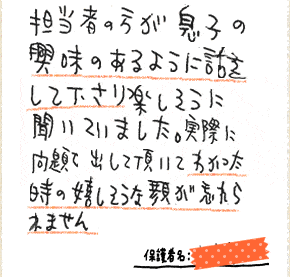 担当者の方が息子の
興味のあるように話を
して下さり楽しそうに
聞いていました。実際に
問題を出して頂いてわかった
時の嬉しそうな顔が忘れら
れません
保護者名: